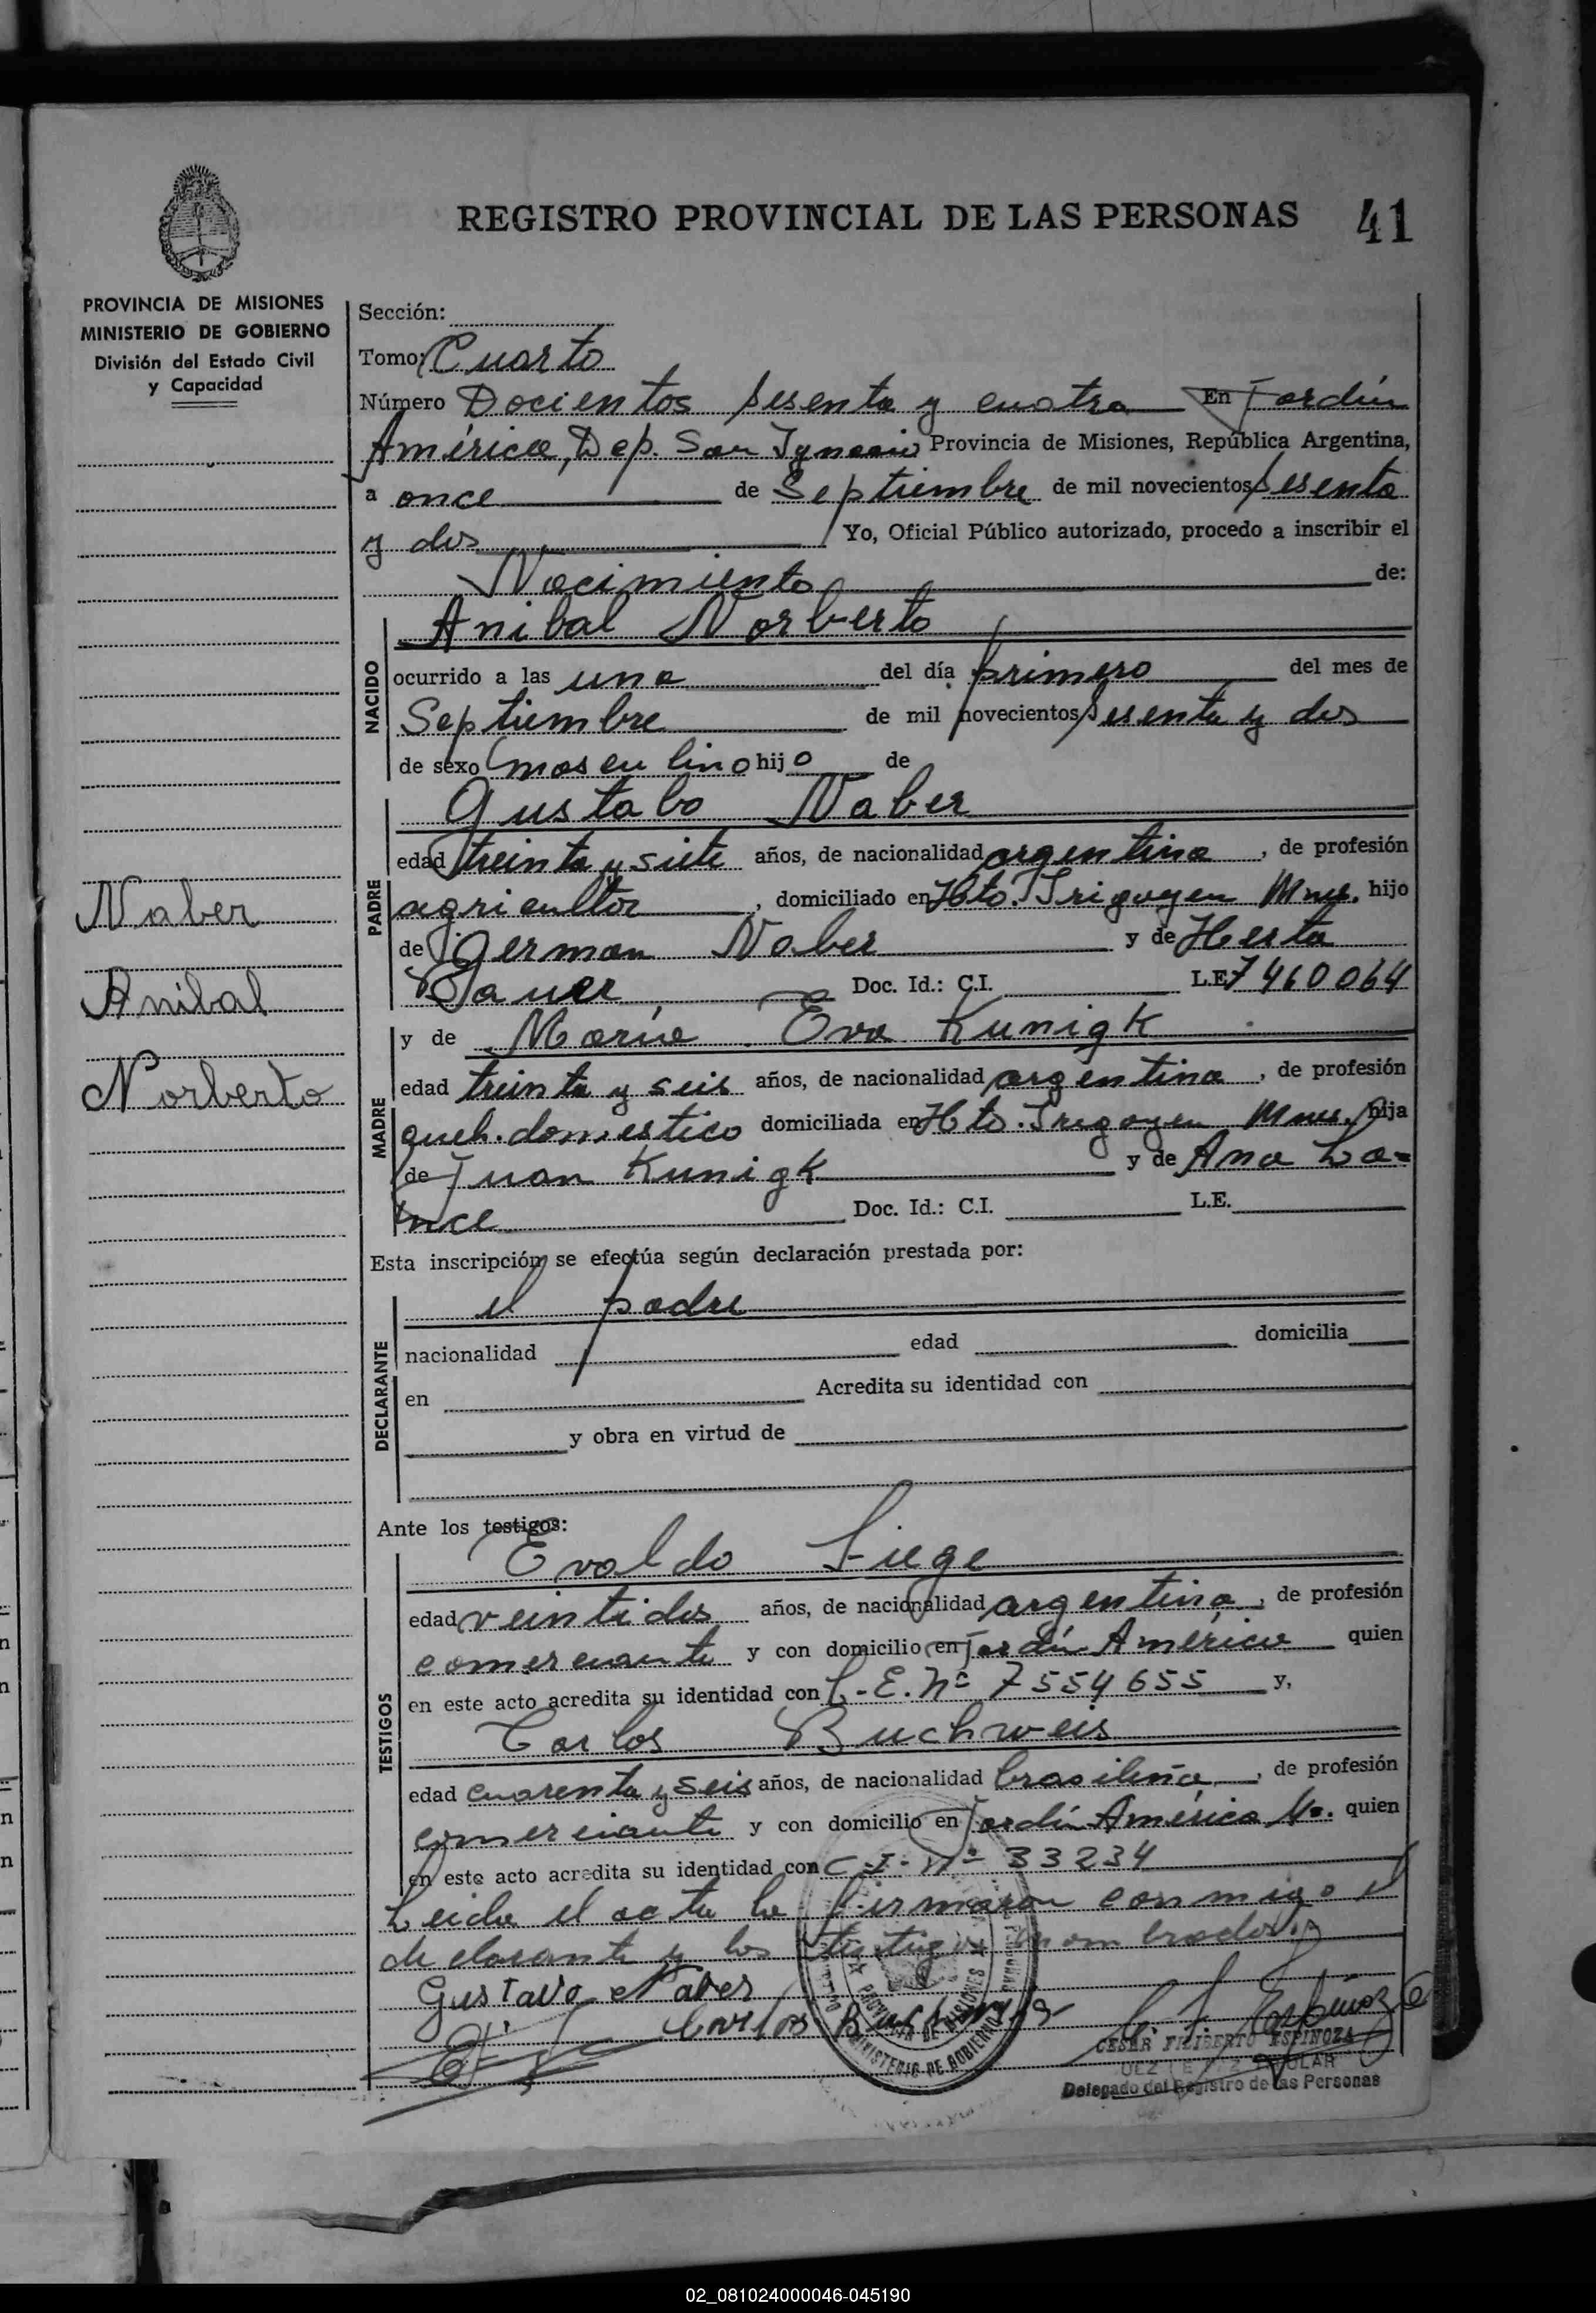 REGISTRO PROVINCIAL DE LAS PERSONAS 41
PROVINCIA DE MISIONES
MINISTERIO DE GOBIERNO
División del Estado Civil
y Capacidad
Naber
Anibal
Norberto
Sección:
Tomo: Cuarto
Número Docientos sesenta y cuatro En Jardín
América, Dep. San Ignacio Provincia de Misiones, República Argentina,
a once de Septiembre de mil novecientos sesenta
y dos Yo, Oficial Público autorizado, procedo a inscribir el
Nacimiento de:
NACIDO
Anibal Norberto
ocurrido a las una del día primero del mes de
Septiembre de mil novecientos sesenta y dos
de sexo masculino hijo de
PADRE
Gustabo Naber
edad treinta y siete años, de nacionalidad argentina, de profesión
agricultor, domiciliado en Hto. Irigoyen Mnes. hijo
de German Naber y de Herta
Bauer Doc. Id.: C.I. L.E. 7460064
MADRE
y de María Eva Kunigk
edad treinta y seis años, de nacionalidad argentina, de profesión
queh. domestico domiciliada en Hto. Irigoyen Mnes. hija
de Juan Kunigk y de Ana La=
nce Doc. Id.: C.I. L.E.
Esta inscripción se efectúa según declaración prestada por:
DECLARANTE
el padre
nacionalidad edad domicilia
en Acredita su identidad con
y obra en virtud de
Ante los testigos:
TESTIGOS
Evaldo Fiege
edad veintidos años, de nacionalidad argentina, de profesión
comerciante y con domicilio en Jardín América quien
en este acto acredita su identidad con L.E. Nº 7554655 y,
Carlos Buchweis
edad cuarenta y seis años, de nacionalidad brasileña, de profesión
comerciante y con domicilio en Jardín América quien
en este acto acredita su identidad con C.I. Nº 33234
Leida el acta la firmaron conmigo el
declarante y los testigos nombrados.
Gustavo Naber
Carlos Buchweis
C. F. Espinoza
PROVINCIA DE MISIONES
MINISTERIO DE GOBIERNO
CESAR FILIBERTO ESPINOZA
JUEZ DE PAZ TITULAR
Delegado del Registro de las Personas
02_081024000046-045190